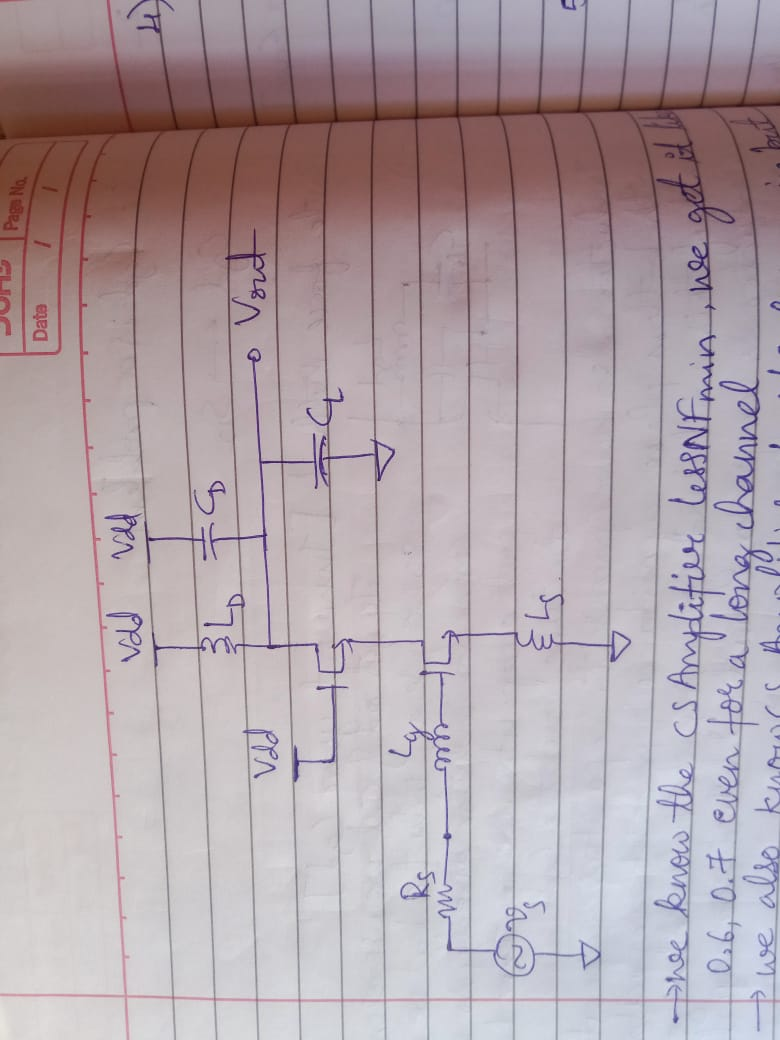 Page No.
Date / /
4)
Vdd Vdd
L_D C_D
Vout
Vdd
C_L
L_g
R_s
v_s
L_s
→ we know the CS Amplifier less NFmin, we get it
0.6, 0.7 even for a long channel
→ we also know CS
but